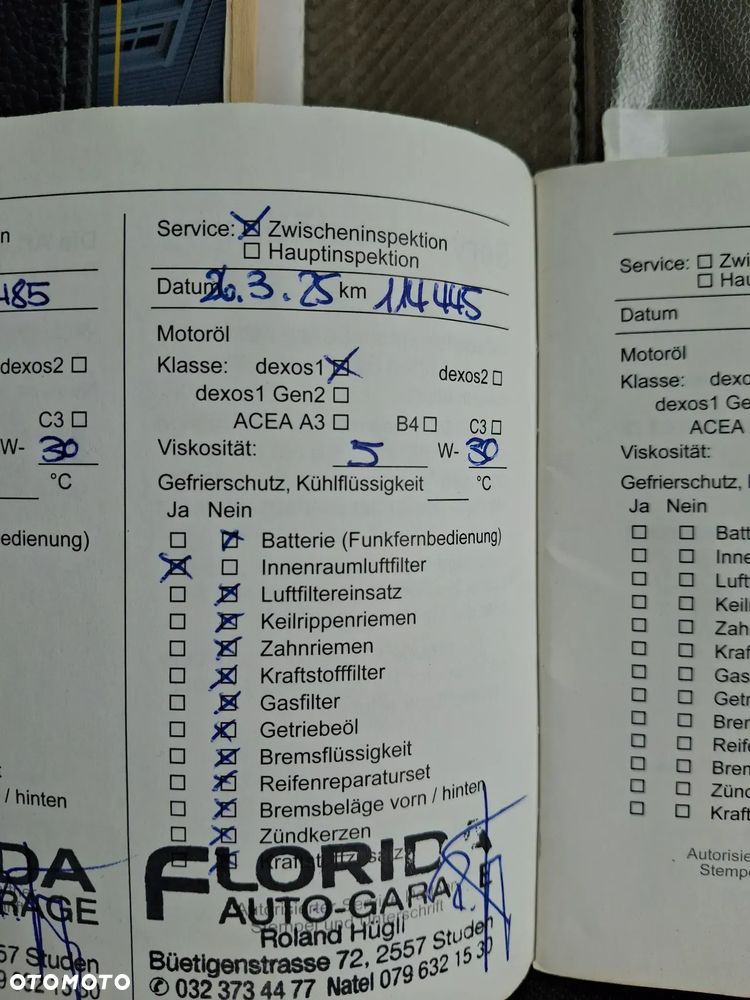 n
485
dexos2
C3
W- 30
°C
edienung)
/ hinten
DA
RAGE
57 Studen
Service: Zwischeninspektion
Hauptinspektion
Datum 26.3.25 km 114 445
Motoröl
Klasse: dexos1 dexos2
dexos1 Gen2
ACEA A3 B4 C3
Viskosität: 5 W- 30
Gefrierschutz, Kühlflüssigkeit °C
Ja Nein
Batterie (Funkfernbedienung)
Innenraumluftfilter
Luftfiltereinsatz
Keilrippenriemen
Zahnriemen
Kraftstofffilter
Gasfilter
Getriebeöl
Bremsflüssigkeit
Reifenreparaturset
Bremsbeläge vorn / hinten
Zündkerzen
FLORIDA
AUTO-GARAGE
Stempel und Unterschrift
Roland Hügli
Büetigenstrasse 72, 2557 Studen
032 373 44 77 Natel 079 632 15 30
Service: Zwi
Hau
Datum
Motoröl
Klasse: dexo
dexos1 Ge
ACEA
Viskosität:
Gefrierschutz,
Ja Nein
Batt
Inne
Luft
Keil
Zah
Kraf
Gas
Getr
Brem
Reife
Brem
Zünd
Kraft
Autorisie
Stempe
OTOMOTO